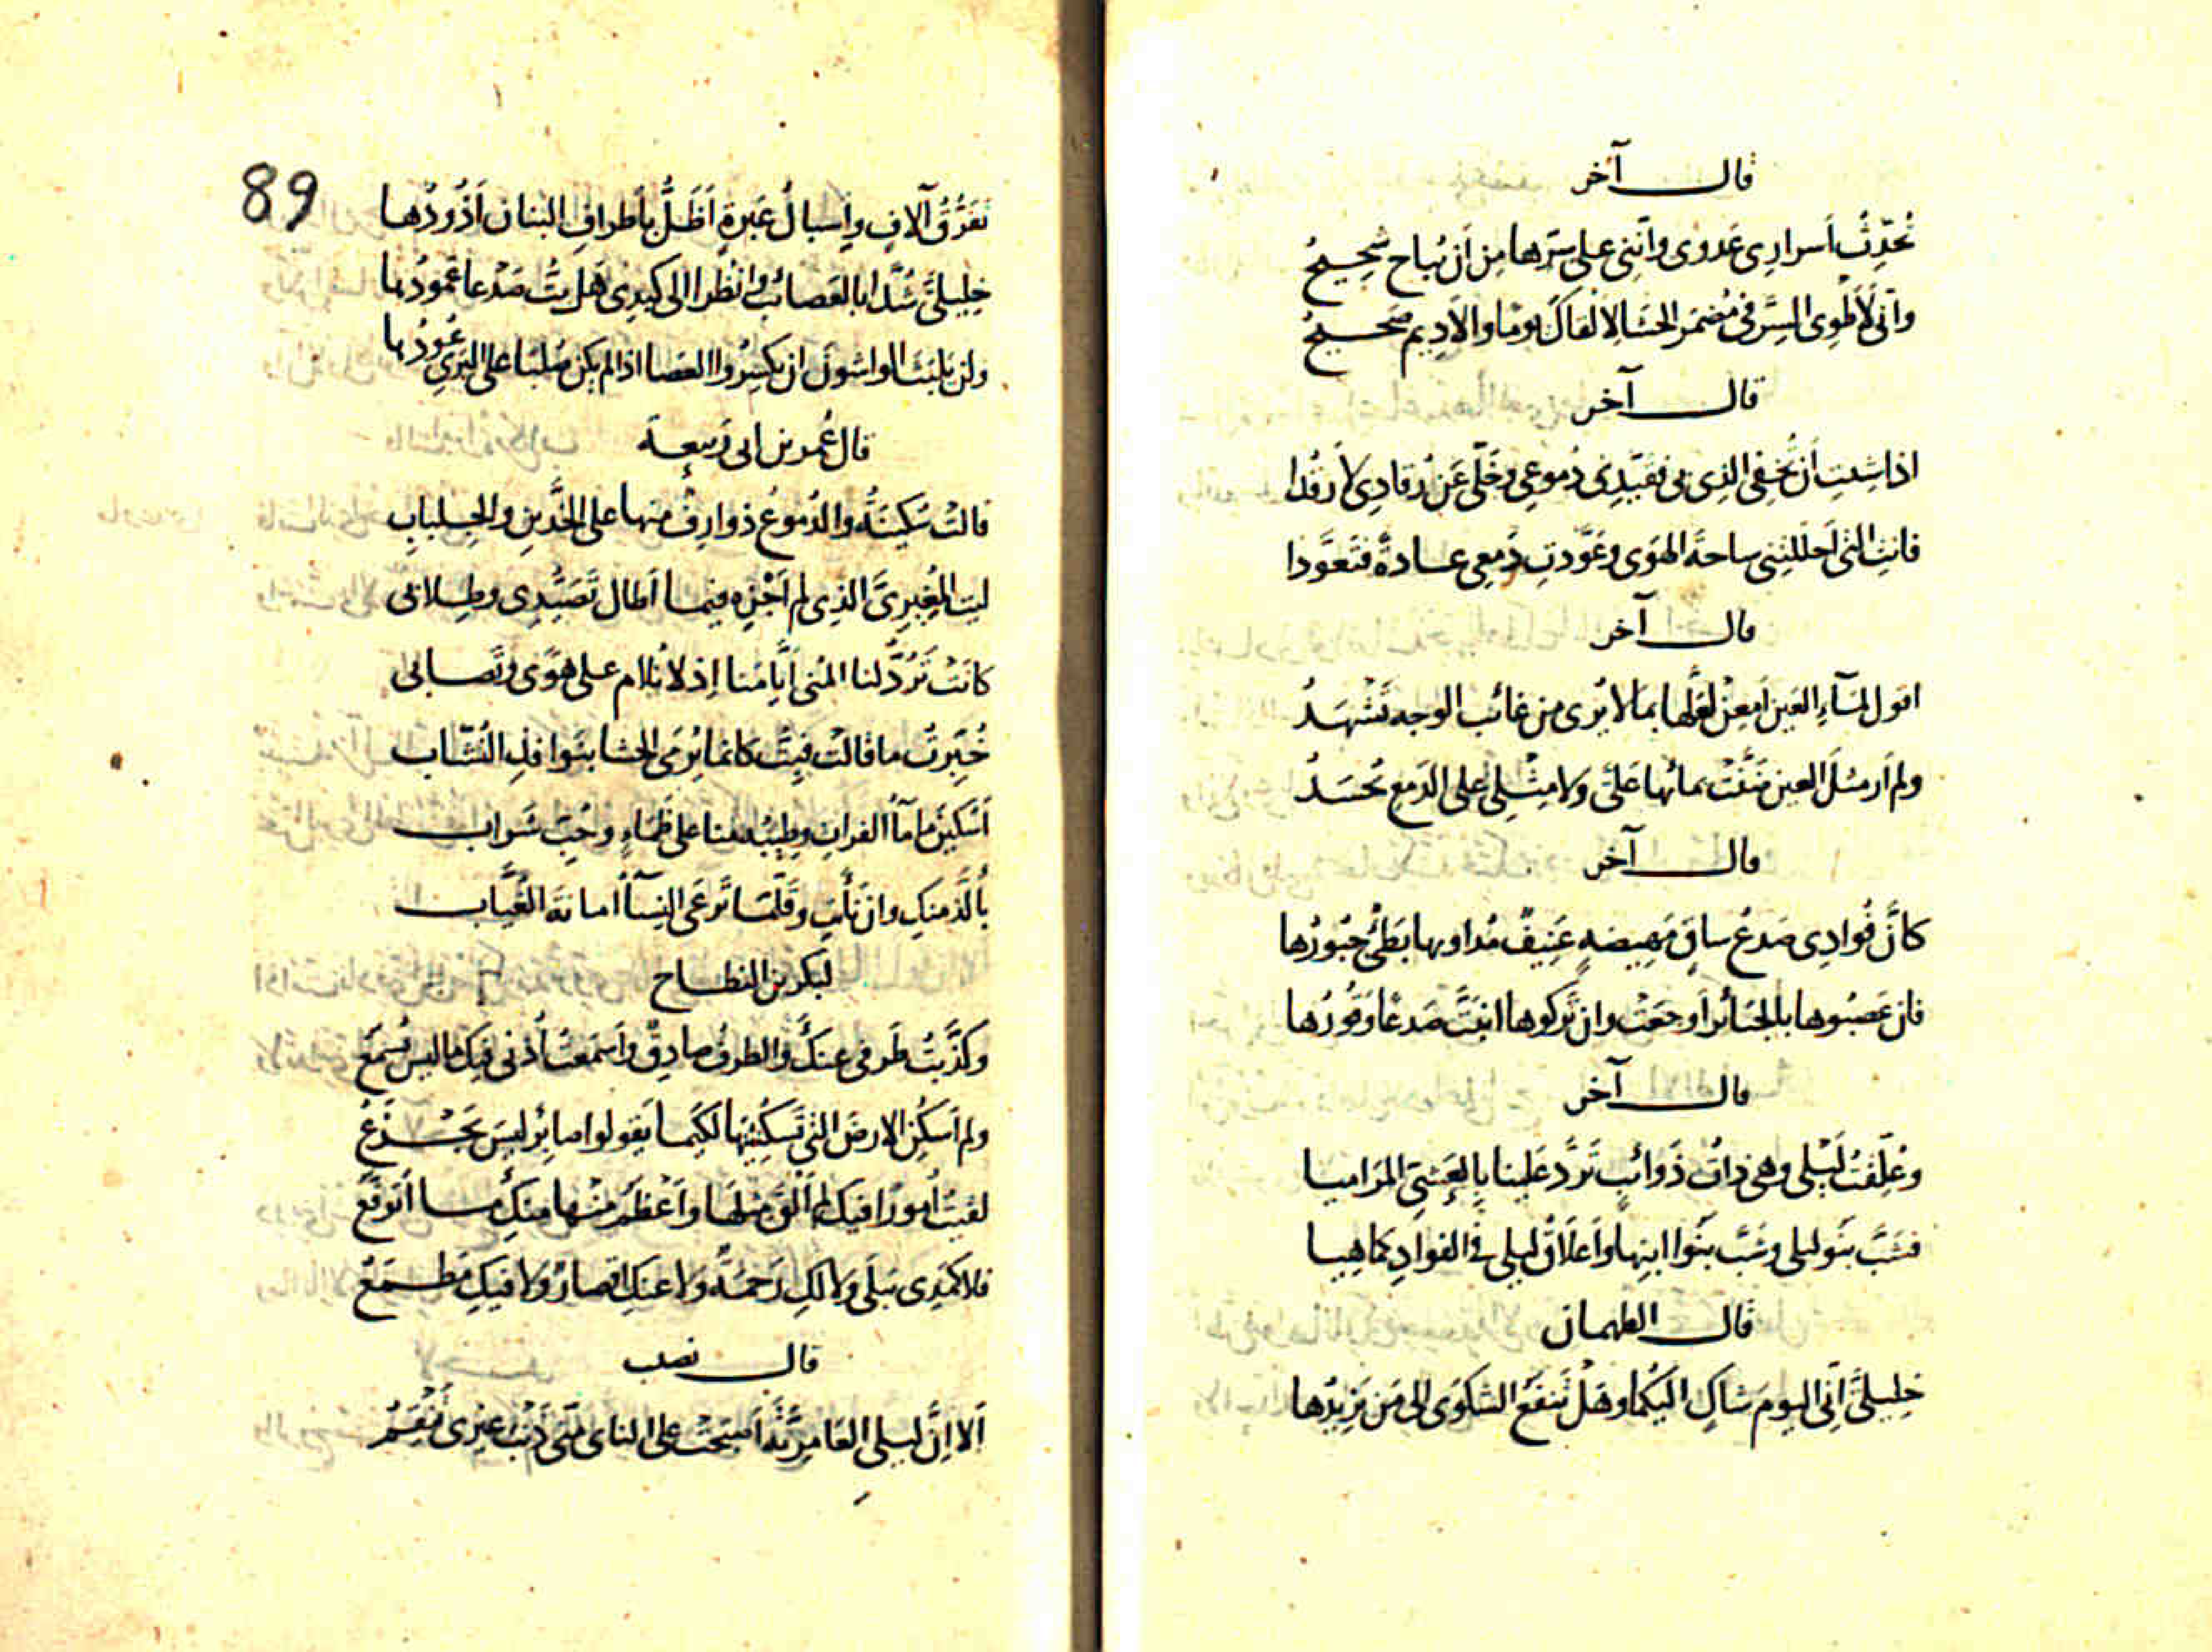 قال آخر
تُحدِّثُ أَسرارِى عَدوى وانّنِى على سرّها مِن أَن تُباح شحِيحُ
وانّى لَأَطوِى السِّرَّ فى مُضمَر الحشا لالقاكَ يومًا والاَدِيم صَحيحُ
قال آخر
اذا شِئتِ أَن تُخفى الذِى بى فقيّدِى دُموعِى وخَلّى عَن رُقادِى لأَرقُدا
فانتِ التى اَحلَلتِنى ساحةَ الهَوى وعَوَّدتِ دَمعِى عادةً فتَعوَّدا
قال آخر
اقول لمآءِ العَين اَمعِنْ لعَلّها بمَا لا يُرى مِن غائب الوجد تَشْهَدُ
ولم اَر مثلَ العين ضَنَّتْ بمائها عَلىَّ ولا مِثْلى على الدَمع تُحسَدُ
قال آخر
كاَنّ فُوادِى صَدعُ ساقٍ مَهِيضةٍ عَنِيفٌ مُداويها بَطئٌ جبُورُها
فان عَصبُوها بالجبَائر اَوجعَتْ وان تَركوها انبَتَّ صَدعًا وَقُورُها
قال آخر
وعُلّقتُ لَيْلى وهى ذاتُ ذَوائبٍ تَردُّ عَلينا بالعَشِىّ المرَاميا
فشَبَّ بَنُو ليلى وشَبَّ بَنُوا ابنِها واَعلاقُ ليلى فى الفوادِ كما هِيا
قال الطهمان
خلِيلىَّ اِنّى اليومَ شاكٍ اليكُما وهَلْ تَنفَعُ الشكوَى الى مَن يَزِيدُها
89
تَفَرُّقَ آلافٍ واِسبالُ عَبرةٍ اَظَلُّ بأَطرافِ البَنان اَذُودُها
خلِيلىَّ شُدّا بالعَصائب وانظُرا الى كبدِى هَل بتَّ صَدْعا عَمُودُها
ولن يَلبَث الواشُونَ ان يكسِرُوا العَصا اذا لم يكن صُلبًا على البَرىِ عُودُها
قال عُمر بن ابى رَبيعة
قالتْ سُكينَةُ والدُموُعُ ذوارِفٌ منها على الخدَّينِ والجلبابِ
ليتَ المُغِيرِىَّ الذِى لم اَجْزِه فيما اَطال تَصَيُّدِى وطِلابى
كانَتْ تَرُدُّ لنا المُنى اَيّامُنا اِذ لا نُلام على هَوًى وتَصابى
خُبِّرتُ ما قالتْ فبِتُّ كانما يُرمَى الحشا بنَوافذِ النُشّاب
اَسُكينَ ما مآءُ الفراتِ وطِيبُه منا على ظَمَاءٍ وحُبِّ شَراب
بأَلذَّ مِنكِ وان نأَيتِ وقَلّمَا تَرعَى النِسآءُ امانةَ الغُيّاب
لبكر بن النطاح
وكَذَّبتُ طَرفى عنكَ والطرفُ صادِقٌ واَسمَعتُ اُذنى فيكَ ما ليس تَسمَعُ
ولم اَسكُنِ الارضَ التى تَسكُنِينها لكَيما يَقولوا صابِرٌ ليسَ يَجزَعُ
لقيتُ اُمورًا فيك لم اَلقَ مثلَها واَعْظَمُ مِنْها مِنكِ ما اتَوقّعُ
فلا كمَدِى يَبلَى ولا لكِ رَحمَةٌ ولا عَنكِ اقصارٌ ولا فيكِ مَطمَعُ
قال نصب
اَلا اِنَّ ليلى العَامِريَّةَ اَصبَحَتْ على الناى مِنّى ذَنبَ غيرِى تَنْقِمُ